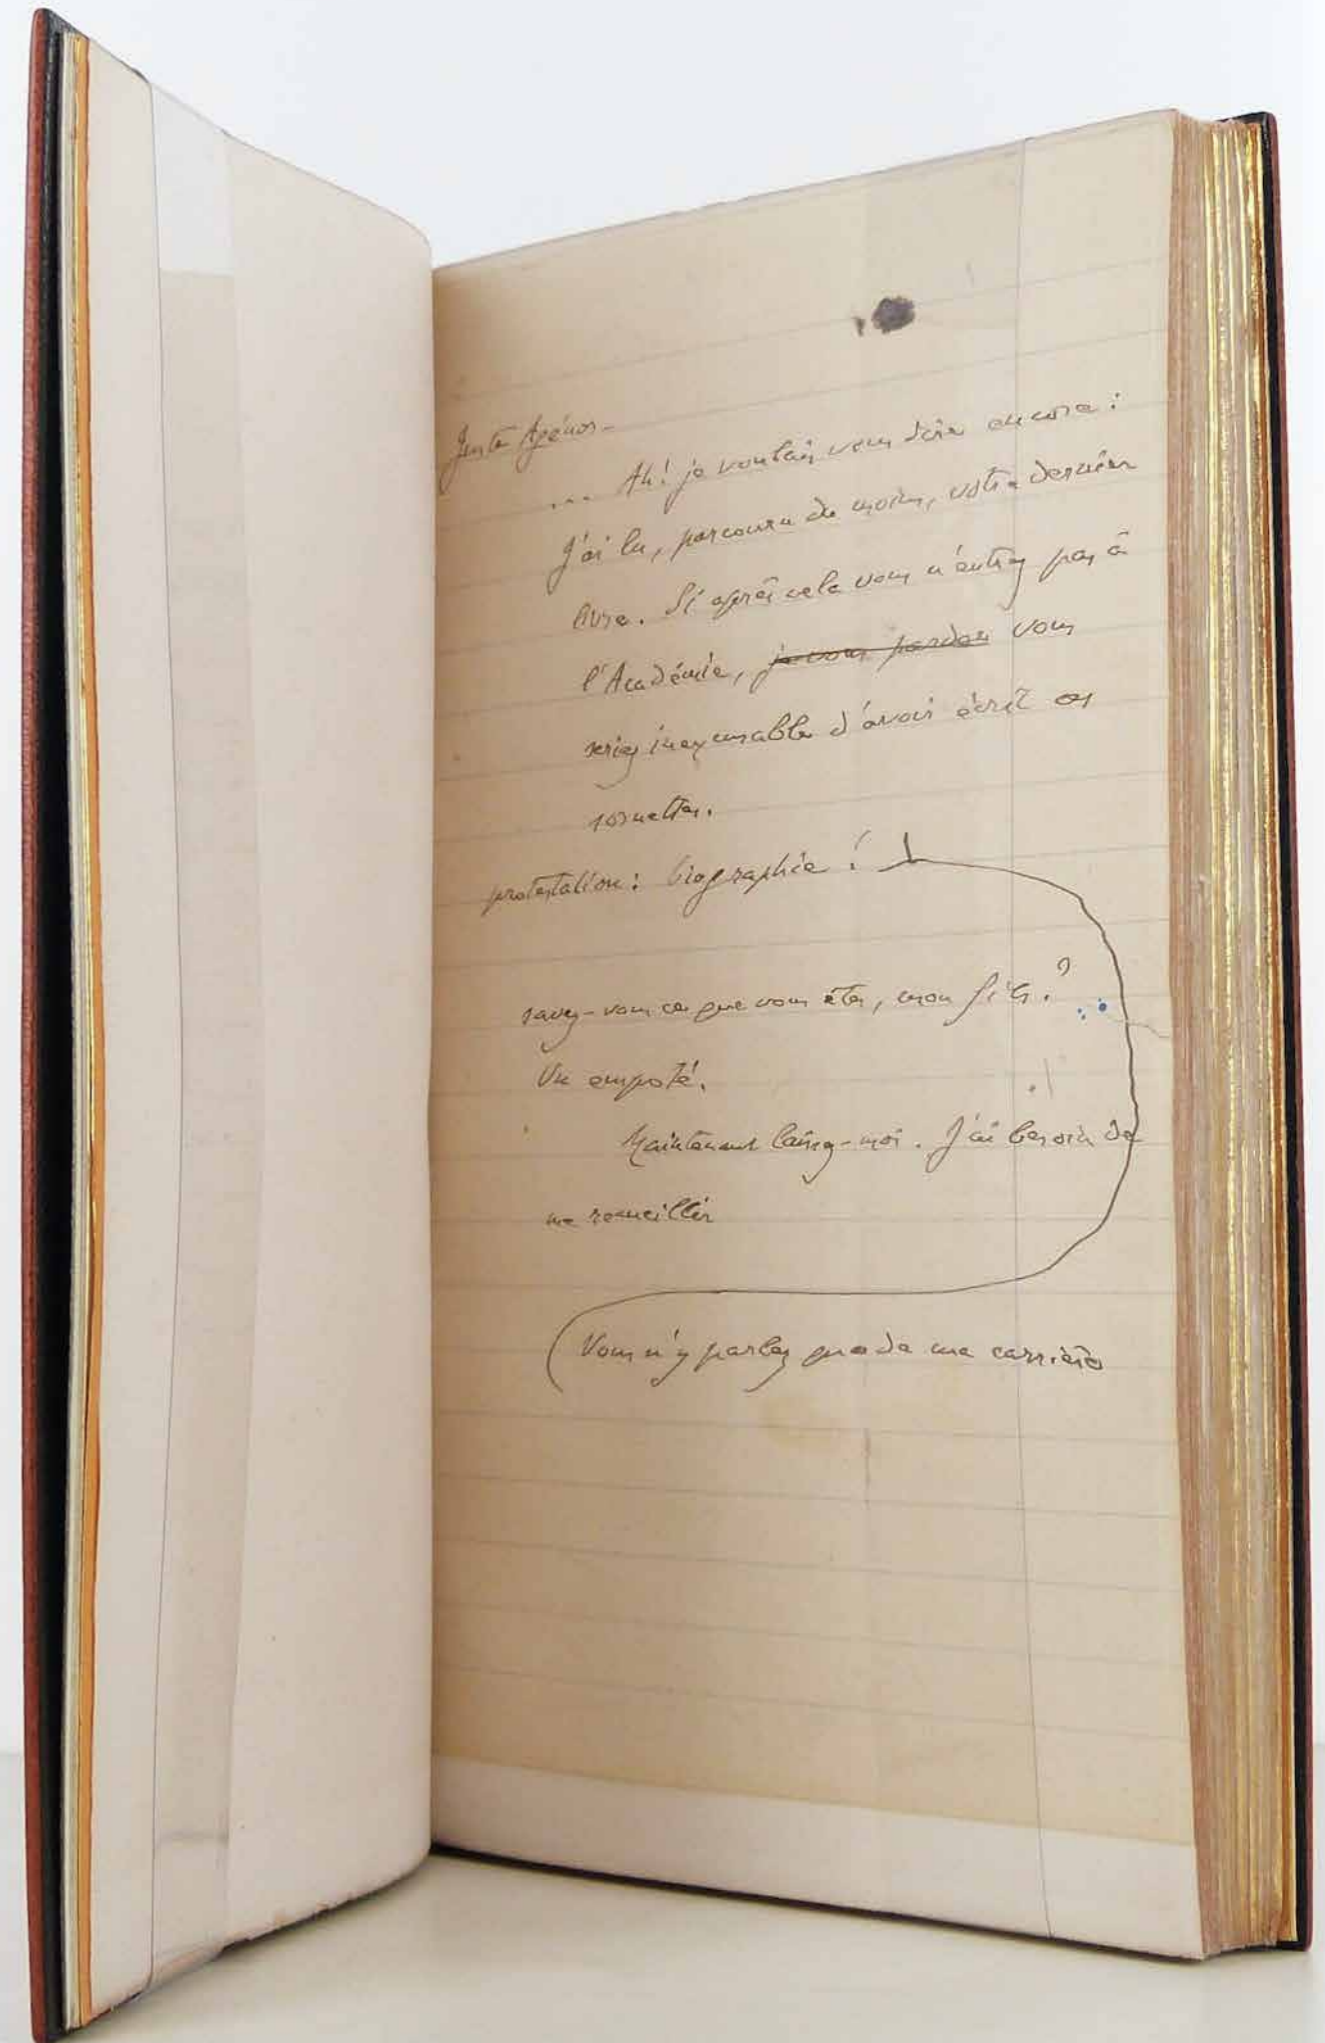 Juste Agénor -
... Ah! je voulais vous dire encore :
J'ai lu, parcouru du moins, votre dernier
livre. Si après cela vous n'entrez pas à
l'Académie, je vous pardon vous
seriez inexcusable d'avoir écrit ces
sornettes.
protestation : biographie !
savez-vous ce que vous êtes, mon fils ?
Un empoté.
Maintenant laissez-moi. J'ai besoin de
me recueillir
Vous n'y parlez que de ma carrière